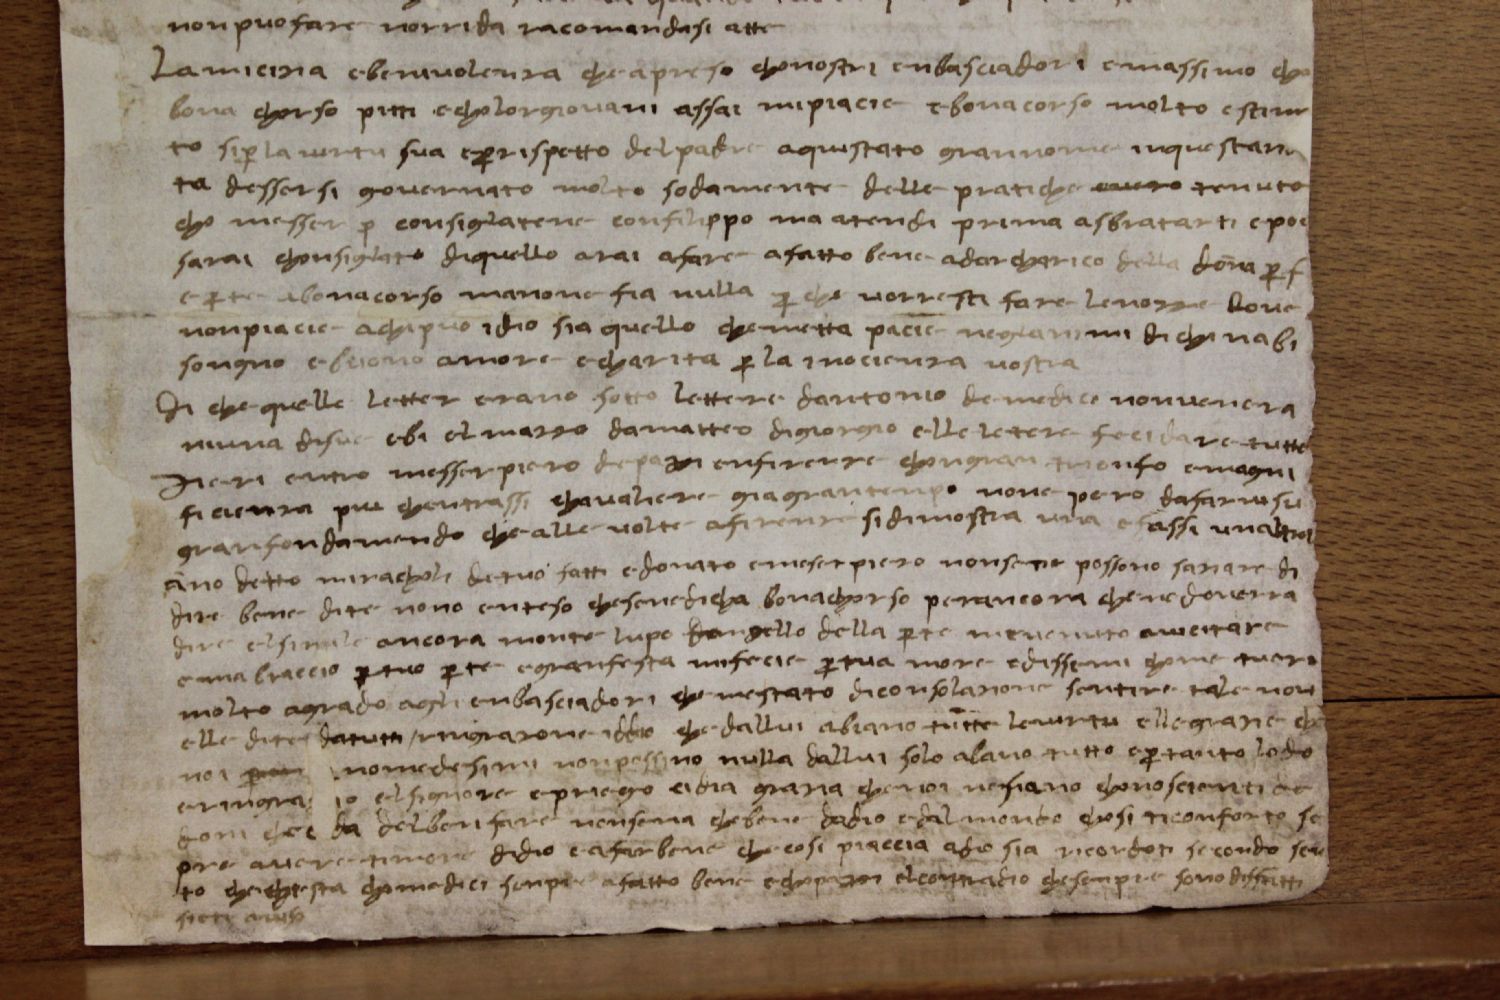 non puo fare norrida racomandasi atte
Lamicizia e benivolenza che apreso cho nostri enbasciadori e massimo cho
bona chorso pitti e cholorgiovani assai mi piacie e bonacorso molto estim
to si p la virtu sua e p rispetto del padre aquistato gran nome in questan
ta dessersi governato molto sodamente delle pratiche tenuto
cho messer p consigliatene con filippo ma atendi prima a sbratarti e poi
sarai chonsigliato di quello arai a fare a fatto bene a dar charico della dona p f
e p te a bonacorso ma none fia nulla p che vorresti fare le nozze dove
non piacie a chi puo idio sia quello che metta pacie negli animi di chi na bi
songno e buono amore e charita p la inocienza vostra
Di che quelle letter erano sotto lettere dantonio de medici non venera
niuna di sue ebi el mazzo da matteo di giorgio e lle letere feci dare tutte
Ieri entro messer piero de pazi en firenze chon gran trionfo e magni
ficienza piu chentrassi chavaliere gia gran tenpo none pero da farvi su
gran fondamendo che alle volte a firenze si dimostra una e fassi unaltra
Ano detto mirachuli de tuo fatti e donato e meser piero non se ne possono saziare di
dire bene di te nono enteso che se ne dicha bonachorso per ancora che ne doverra
dire el simile ancora monte lupo dangello della p te me venuto a vicitare
e ma bracio p tuo p te e gran festa mi fecie p tua more e dissemi chome tu eri
molto a grado agli enbasciadori che me stato di consolazione sentire tale nov
elle di te da tutti ringrazone iddio che dallui abiano tutte le virtu e lle grazie che
noi nomedesimi non possino nulla dallui solo alano tutto e p tanto lodo
e ringra io el signore e priego ci dia grazia che noi ne siano chonoscienti de
doni che ci da del ben fare non se na che bene da dio e dal mondo chosi ti conforto se
pre avere timore di dio e a far bene che cosi piaccia a dio sia ricordoti secondo sen
to che chesta cho medici senpre a fatto bene e cho pazi el contradio che senpre sono disfatti